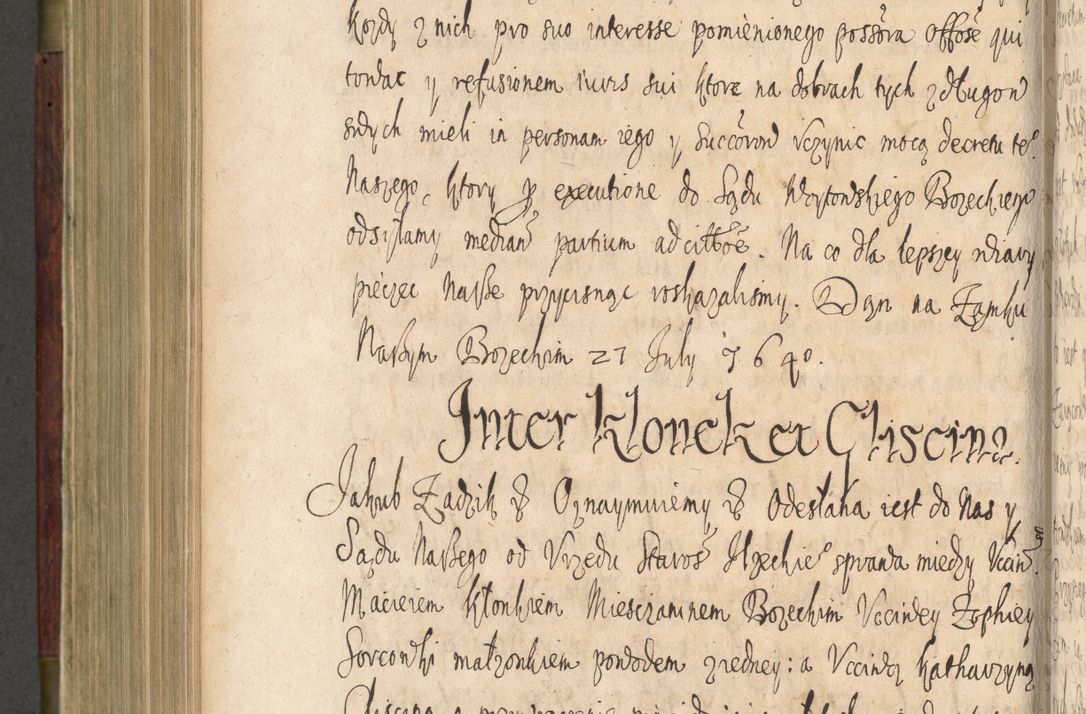 kozdy z nich pro suo interesse pomienionego possora offose qui
tować y refusionem iuris sui ktore na dobrach tych z długow
swych mieli in personam iego y succorow vczynic mocą decretu teo
Naszego, ktory pro executione do Sądu Woytowskiego Bozeckiego
odsyłamy median partium ad citłoe. Na co dla lepszey wiary
pieczęc Naszę przycisnąc roskazalismy. Dan na Zamku
Naszym Bozeckim 27 July 1640.
Inter Klonek et Gliscina.
Jakub Zadzik & Oznaymuiemy & Odesłana iest do Nas y
Sądu Naszego od Vrzędu Staros Ilzeckieo sprawa miedzy Vccin
Macieiem Kłonkiem Miesczaninem Bozeckim Vcciwey Zophiey
Sorcowki małzonkiem powodem z iedney: a Vcciwą Katharzyną